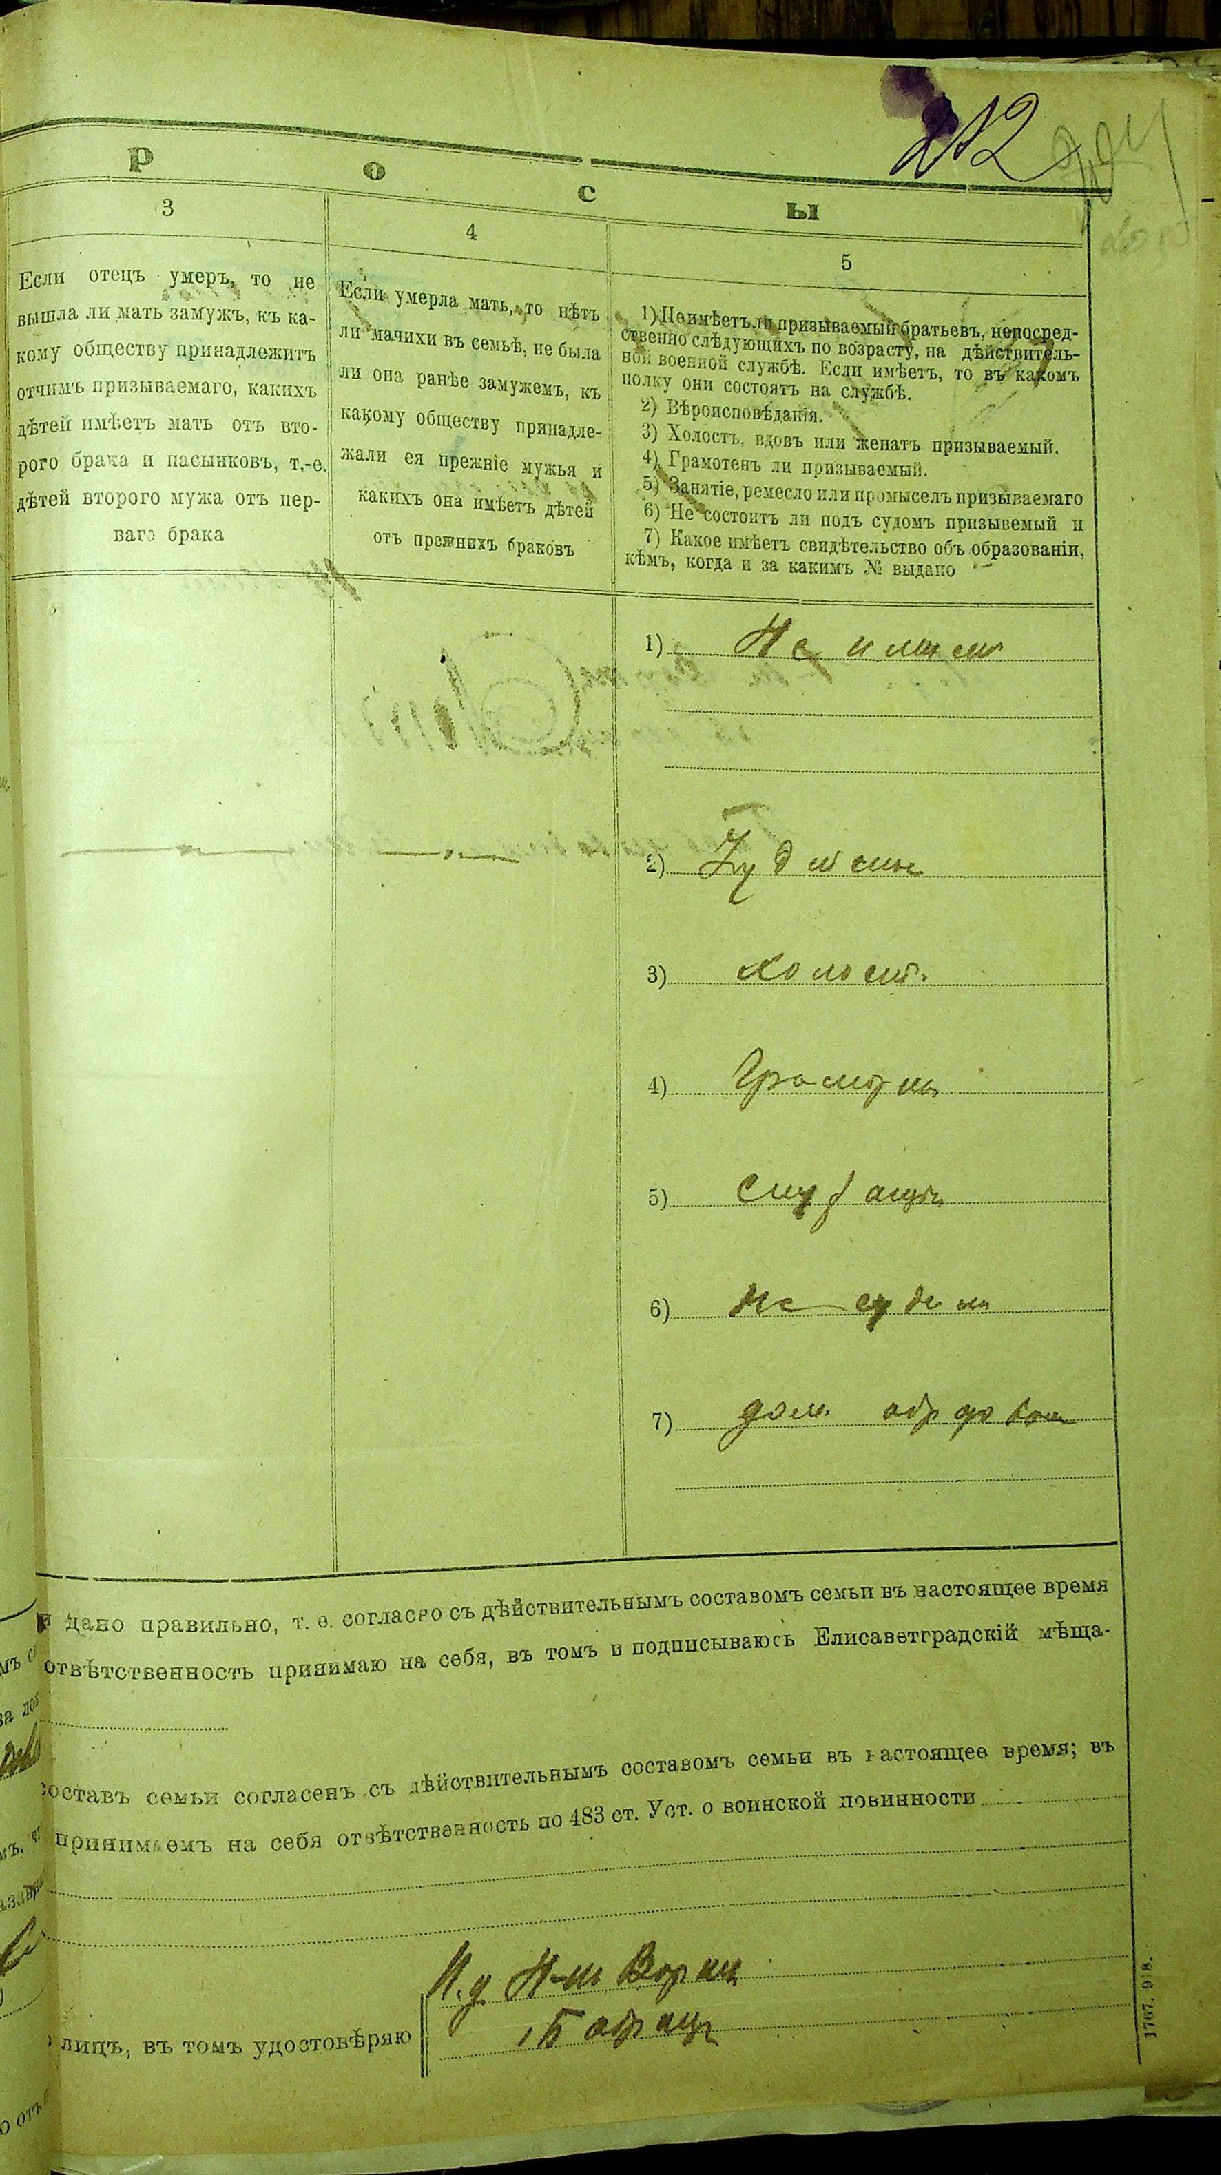 212
Р О С Ы
3
4
5
Если отецъ умеръ, то не
вышла ли мать замужъ, къ ка-
кому обществу принадлежитъ
отчимъ призываемаго, какихъ
дѣтей имѣетъ мать отъ вто-
рого брака и пасынковъ, т.-е.
дѣтей второго мужа отъ пер-
ваго брака
Если умерла мать, то нѣтъ
ли мачихи въ семьѣ, не была
ли она ранѣе замужемъ, къ
какому обществу принадле-
жали ея прежніе мужья и
какихъ она имѣетъ дѣтей
отъ прежнихъ браковъ
1) Неимѣетъ ли призываемый братьевъ, непосред-
ственно слѣдующихъ по возрасту, на дѣйствитель-
ной военной службѣ. Если имѣетъ, то въ какомъ
полку они состоятъ на службѣ.
2) Вѣроисповѣданія.
3) Холостъ, вдовъ или женатъ призываемый.
4) Грамотенъ ли призываемый.
5) Занятіе, ремесло или промыселъ призываемаго
6) Не состоитъ ли подъ судомъ призываемый и
7) Какое имѣетъ свидѣтельство объ образованіи,
кѣмъ, когда и за какимъ № выдано
1) Не имѣетъ
2) Іудейска
3) холостъ
4) Грамотн
5)
6) Не судим
7) дом. образован
и дано правильно, т. е. согласно съ дѣйствительнымъ составомъ семьи въ настоящее время
отвѣтственность принимаю на себя, въ томъ и подписываюсь Елисаветградскій мѣща-
составъ семьи согласенъ съ дѣйствительнымъ составомъ семьи въ настоящее время; въ
принимаемъ на себя отвѣтственность по 483 ст. Уст. о воинской повинности
И. д.
лицъ, въ томъ удостовѣряю
1767. 918.